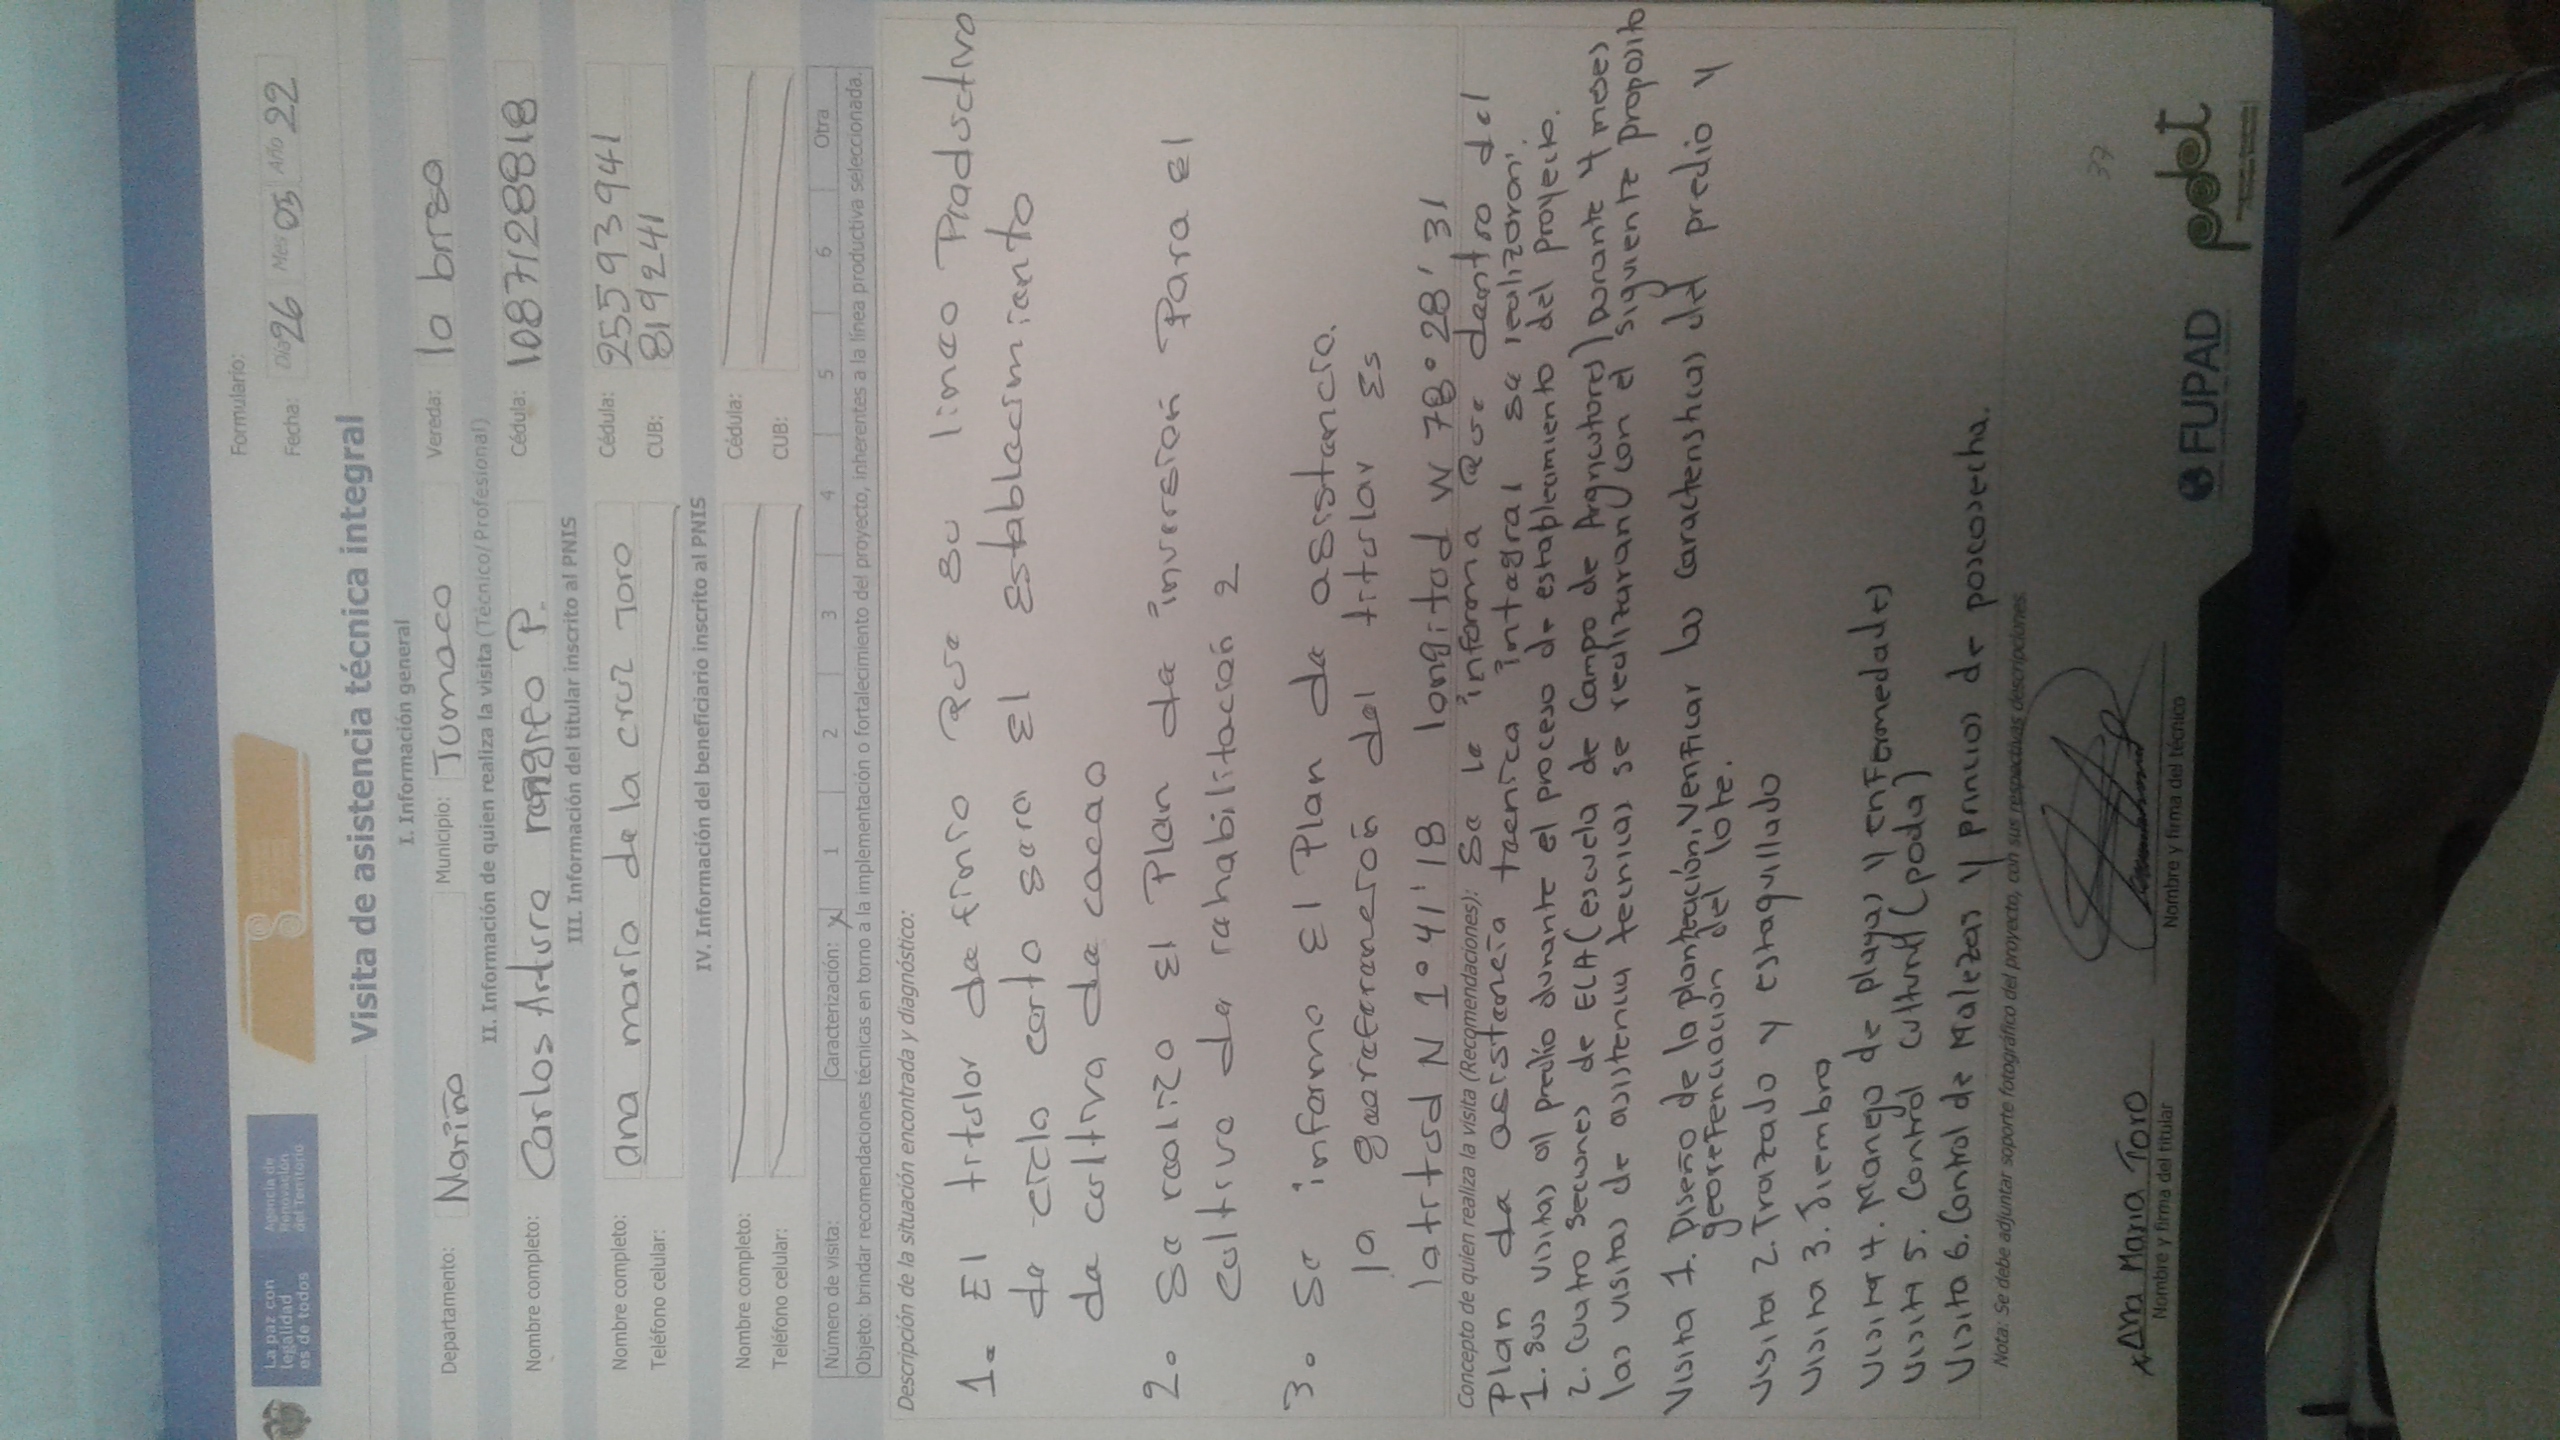 La paz con
legalidad
es de todos
Agencia de
Renovación
del Territorio
Formulario:
Fecha: Día 26 Mes 05 Año 22
Visita de asistencia técnica integral
I. Información general
Departamento: Nariño Municipio: Tumaco Vereda: la brisa
II. Información de quien realiza la visita (Técnico/ Profesional)
Nombre completo: Carlos Arturo P. Cédula: 1087128818
III. Información del titular inscrito al PNIS
Nombre completo: ana maria de la cruz Toro Cédula: 255593941
Teléfono celular: CUB: 819241
IV. Información del beneficiario inscrito al PNIS
Nombre completo: Cédula:
Teléfono celular: CUB:
Número de visita: Caracterización: X 1 2 3 4 5 6 Otra
Objeto: brindar recomendaciones técnicas en torno a la implementación o fortalecimiento del proyecto, inherentes a la línea productiva seleccionada.
Descripción de la situación encontrada y diagnóstico:
1. El titular definio que su linea Productiva
de ciclo corto sera El Establecimiento
de cultivo de cacao
2. Se realizo El Plan de inversión Para El
cultivo de rehabilitación 2
3. Se informo El Plan de asistencia.
la georeferanción del titular Es
latitud N 1° 41' 18 longitud W 78° 28' 31
Concepto de quien realiza la visita (Recomendaciones): Se le informa que dentro del
Plan de asistencia tecnica integral se realizaron:
1. Sus visitas al predio durante el proceso de establecimiento del proyecto.
2. Cuatro Secciones de ELA (escuela de Campo de Agricultores) Durante 4 meses
las visitas de asistencia tecnicas se realizaran con el siguiente proposito
Visita 1. Diseño de la plantación, Verificar las Caracteristicas del predio y
georefenciación del lote.
Visita 2. Trazado y estaquillado
Visita 3. Siembra
Visita 4. Manejo de plagas y enfermedades
Visita 5. Control cultural (poda)
Visita 6. Control de Malezas y principios de poscosecha.
Nota: Se debe adjuntar soporte fotográfico del proyecto, con sus respectivas descripciones.
x Ana Maria Toro
Nombre y firma del titular
Nombre y firma del técnico
37
FUPAD
pdet